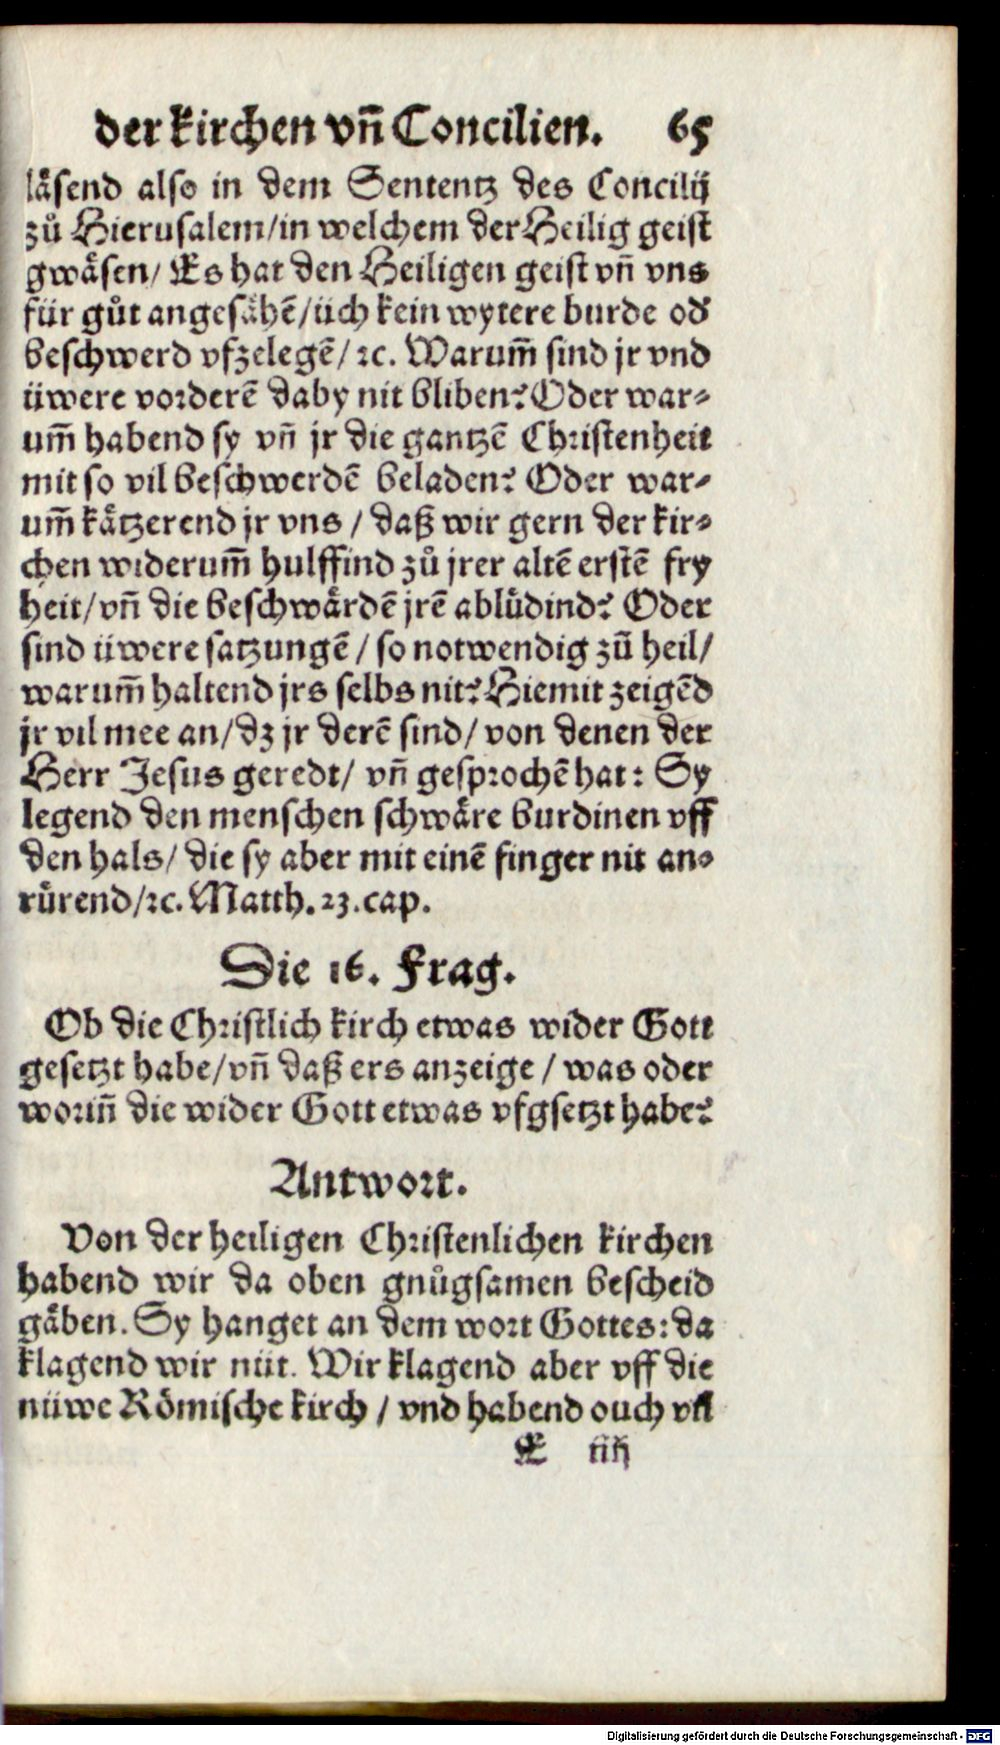 der kirchen vñ Concilien. 65
läsend also in dem Sententz des Concilij
zů Hierusalem/in welchem der Heilig geist
gwäsen/ Es hat den Heiligen geist vñ vns
für gůt angesähē/üch kein wytere burde od
beschwerd vfzelegē/ ꝛc. Warum̄ sind jr vnd
üwere vorderē daby nit bliben? Oder war⸗
um̄ habend sy vñ jr die gantzē Christenheit
mit so vil beschwerdē beladen? Oder war⸗
um̄ kätzerend jr vns / daß wir gern der kir⸗
chen widerum̄ hulffind zů jrer altē erstē fry
heit/vñ die beschwärdē jrē ablůdind? Oder
sind üwere satzungē / so notwendig zů heil/
warum̄ haltend jrs selbs nit? Hiemit zeigēd
jr vil mee an/dz jr derē sind/ von denen der
Herr Jesus geredt/ vñ gesprochē hat: Sy
legend den menschen schwäre burdinen vff
den hals/ die sy aber mit einē finger nit an⸗
rürend/ꝛc. Matth. 23. cap.
Die 16. Frag.
Ob die Christlich kirch etwas wider Gott
gesetzt habe/vñ daß ers anzeige / was oder
woriñ die wider Gott etwas vfgsetzt habe?
Antwort.
Von der heiligen Christenlichen kirchen
habend wir da oben gnůgsamen bescheid
gäben. Sy hanget an dem wort Gottes: da
klagend wir nüt. Wir klagend aber vff die
nüwe Römische kirch / vnd habend ouch vil
E iiij
Digitalisierung gefördert durch die Deutsche Forschungsgemeinschaft - DFG